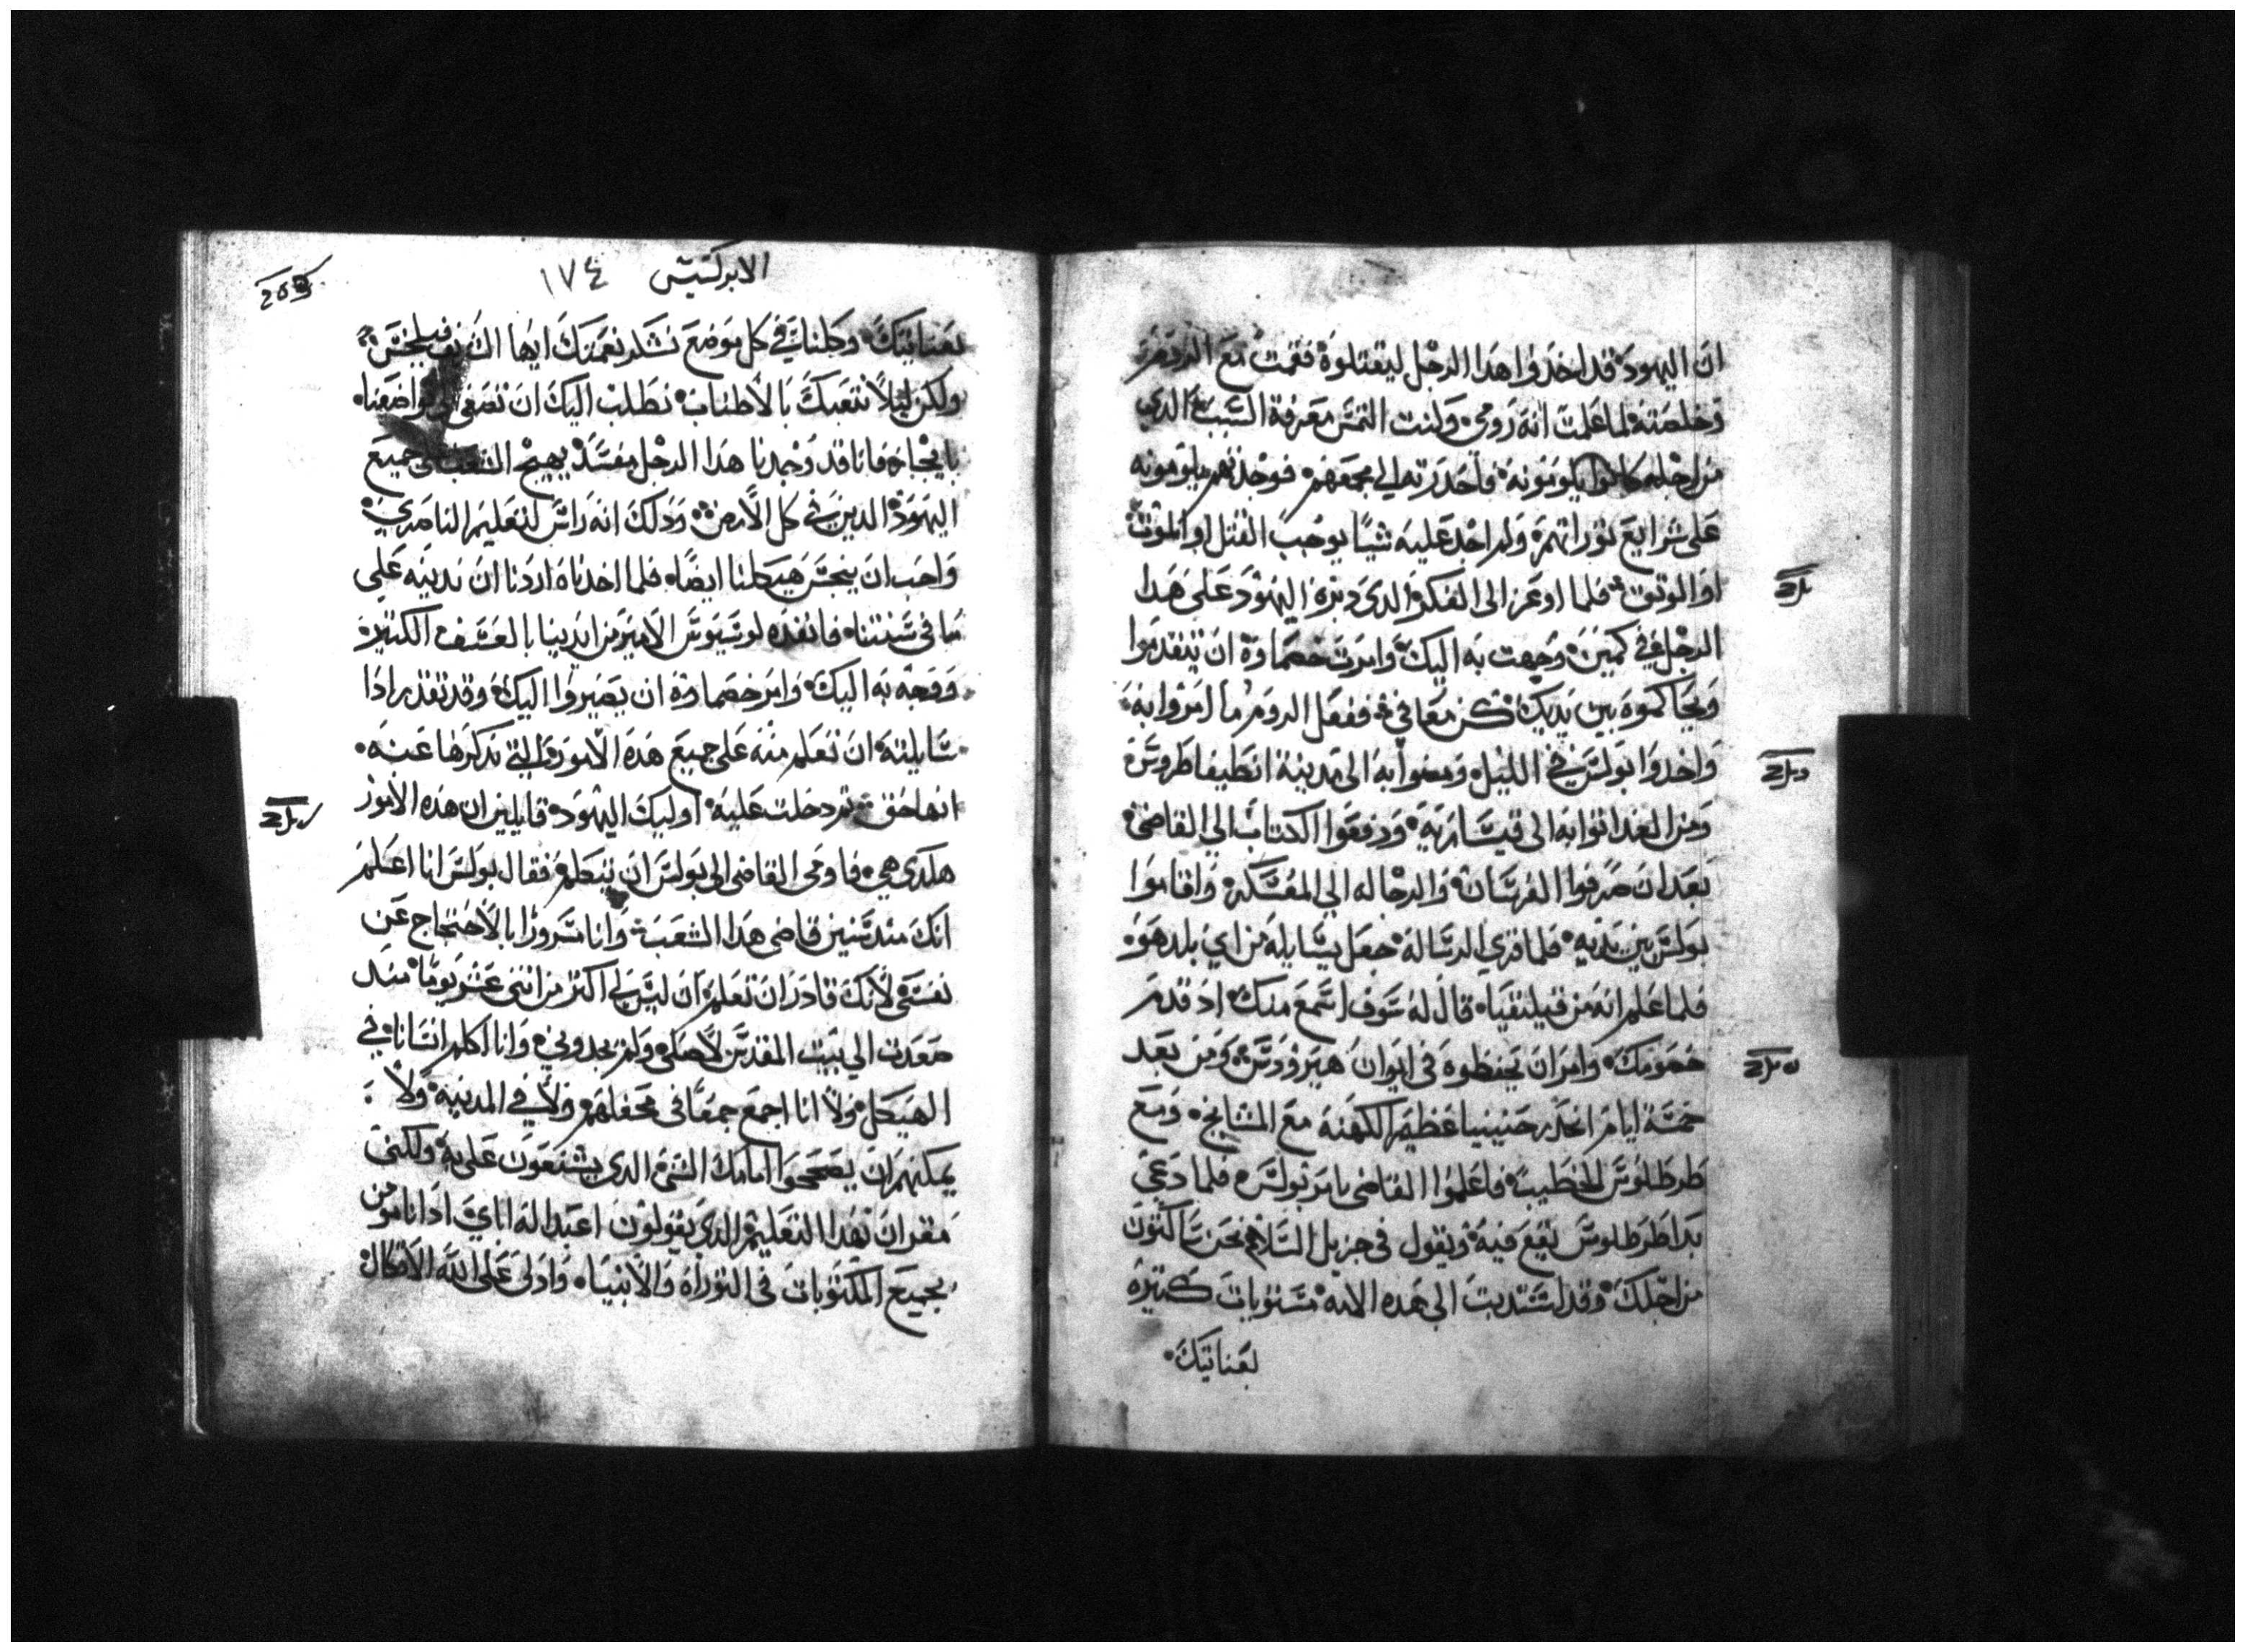 ان اليهود قد اخدوا هدا الرجل ليقتلوه فقمت مع الروم
وخلصته لما علمت انه رومي وكنت التمس معرفة السبب الدي
من اجله كانوا يلومونه فاحدرته الي مجمعهم فوجدتهم يلومونه
علي شرايع توراتهم ولم اجد عليه شيا يوجب القتل او الموت
او الوتوق فلما اوعز الى الفكرة الدي دبره اليهود على هدا
الرجل في كمين وجهت به اليك وامرت خصماوة ان يتقدموا
ويحاكموه بين يديك كن معافي ففعل الروم ما امروا به
واخدوا بولس في الليل ومضوا به الى مدينة انطيفاطروس
ومن الغد اتوا به الى قيسارية ودفعوا الكتاب الي القاضي
بعد ان صرفوا الفرسان والرجاله الي المعسكر واقاموا
بولس بين يديه فلما قري الرساله جعل يسايله من اي بلد هو
فلما علم انه من قيليقيا قال له سوف اسمع منك اد قدم
خصومك وامر ان يحفظوه فى ايوان هيرودس ومن بعد
خمسة ايام انحدر حنينيا عظيم الكهنه مع المشايخ ومع
طرطلوس الخطيب فاعلموا القاضى بامر بولس فلما دعي
بدا طرطلوس يقع فيه ويقول فى جزيل السلام نحن ساكنون
من اجلك وقد اسندت الى هده الامه مستويات كتيره
بعنايتك
الابركسيس ١٧٤
203
بعنايتك وكلنا في كل موضع نشكر نعمتك ايها الشريف فيلخس
ولكن ليلا نتعبك بالاطناب نطلب اليك ان تصغي الي تواضعنا
بايجاز فانا قد وجدنا هدا الرجل مفسد يهيج الشعب على جميع
اليهود الدين في كل الارض ودلك انه راس لتعليم الناصري
واحب ان ينجس هيكلنا ايضا فلما اخدناه اردنا ان ندينه علي
ما في سنتنا فانقده لوسيوس الامير من ايدينا بالعسف الكتير
ووجه به اليك وامر خصماوة ان يصيروا اليك وقد تقدر ادا
سايلته ان تعلم منه على جميع هده الامور التي ندكرها عنه
انها حق تم دخلت عليه اوليك اليهود قايلين ان هده الامور
هكدي هي فاومى القاضى الى بولس ان يتكلم فقال بولس انا اعلم
انك مند سنين قاضى هدا الشعب وانا مسرورا بالاحتجاج عن
نفسى لانك قادر ان تعلم ان ليس لي اكتر من اتني عشر يوما مند
صعدت الي بيت المقدس لاصلي ولم يجدوني وانا اكلم انسانا في
الهيكل ولا انا اجمع جمعا فى محفلهم ولا في المدينه ولا
يمكنهم ان يصححوا امامك الشي الدي يشنعون علي به ولكني
مقر ان بهدا التعليم الدي يقولون اعبد اله اباي اد انا مومن
بجميع المكتوبات في التوراه والانبياه وادلى على الله الاتكال